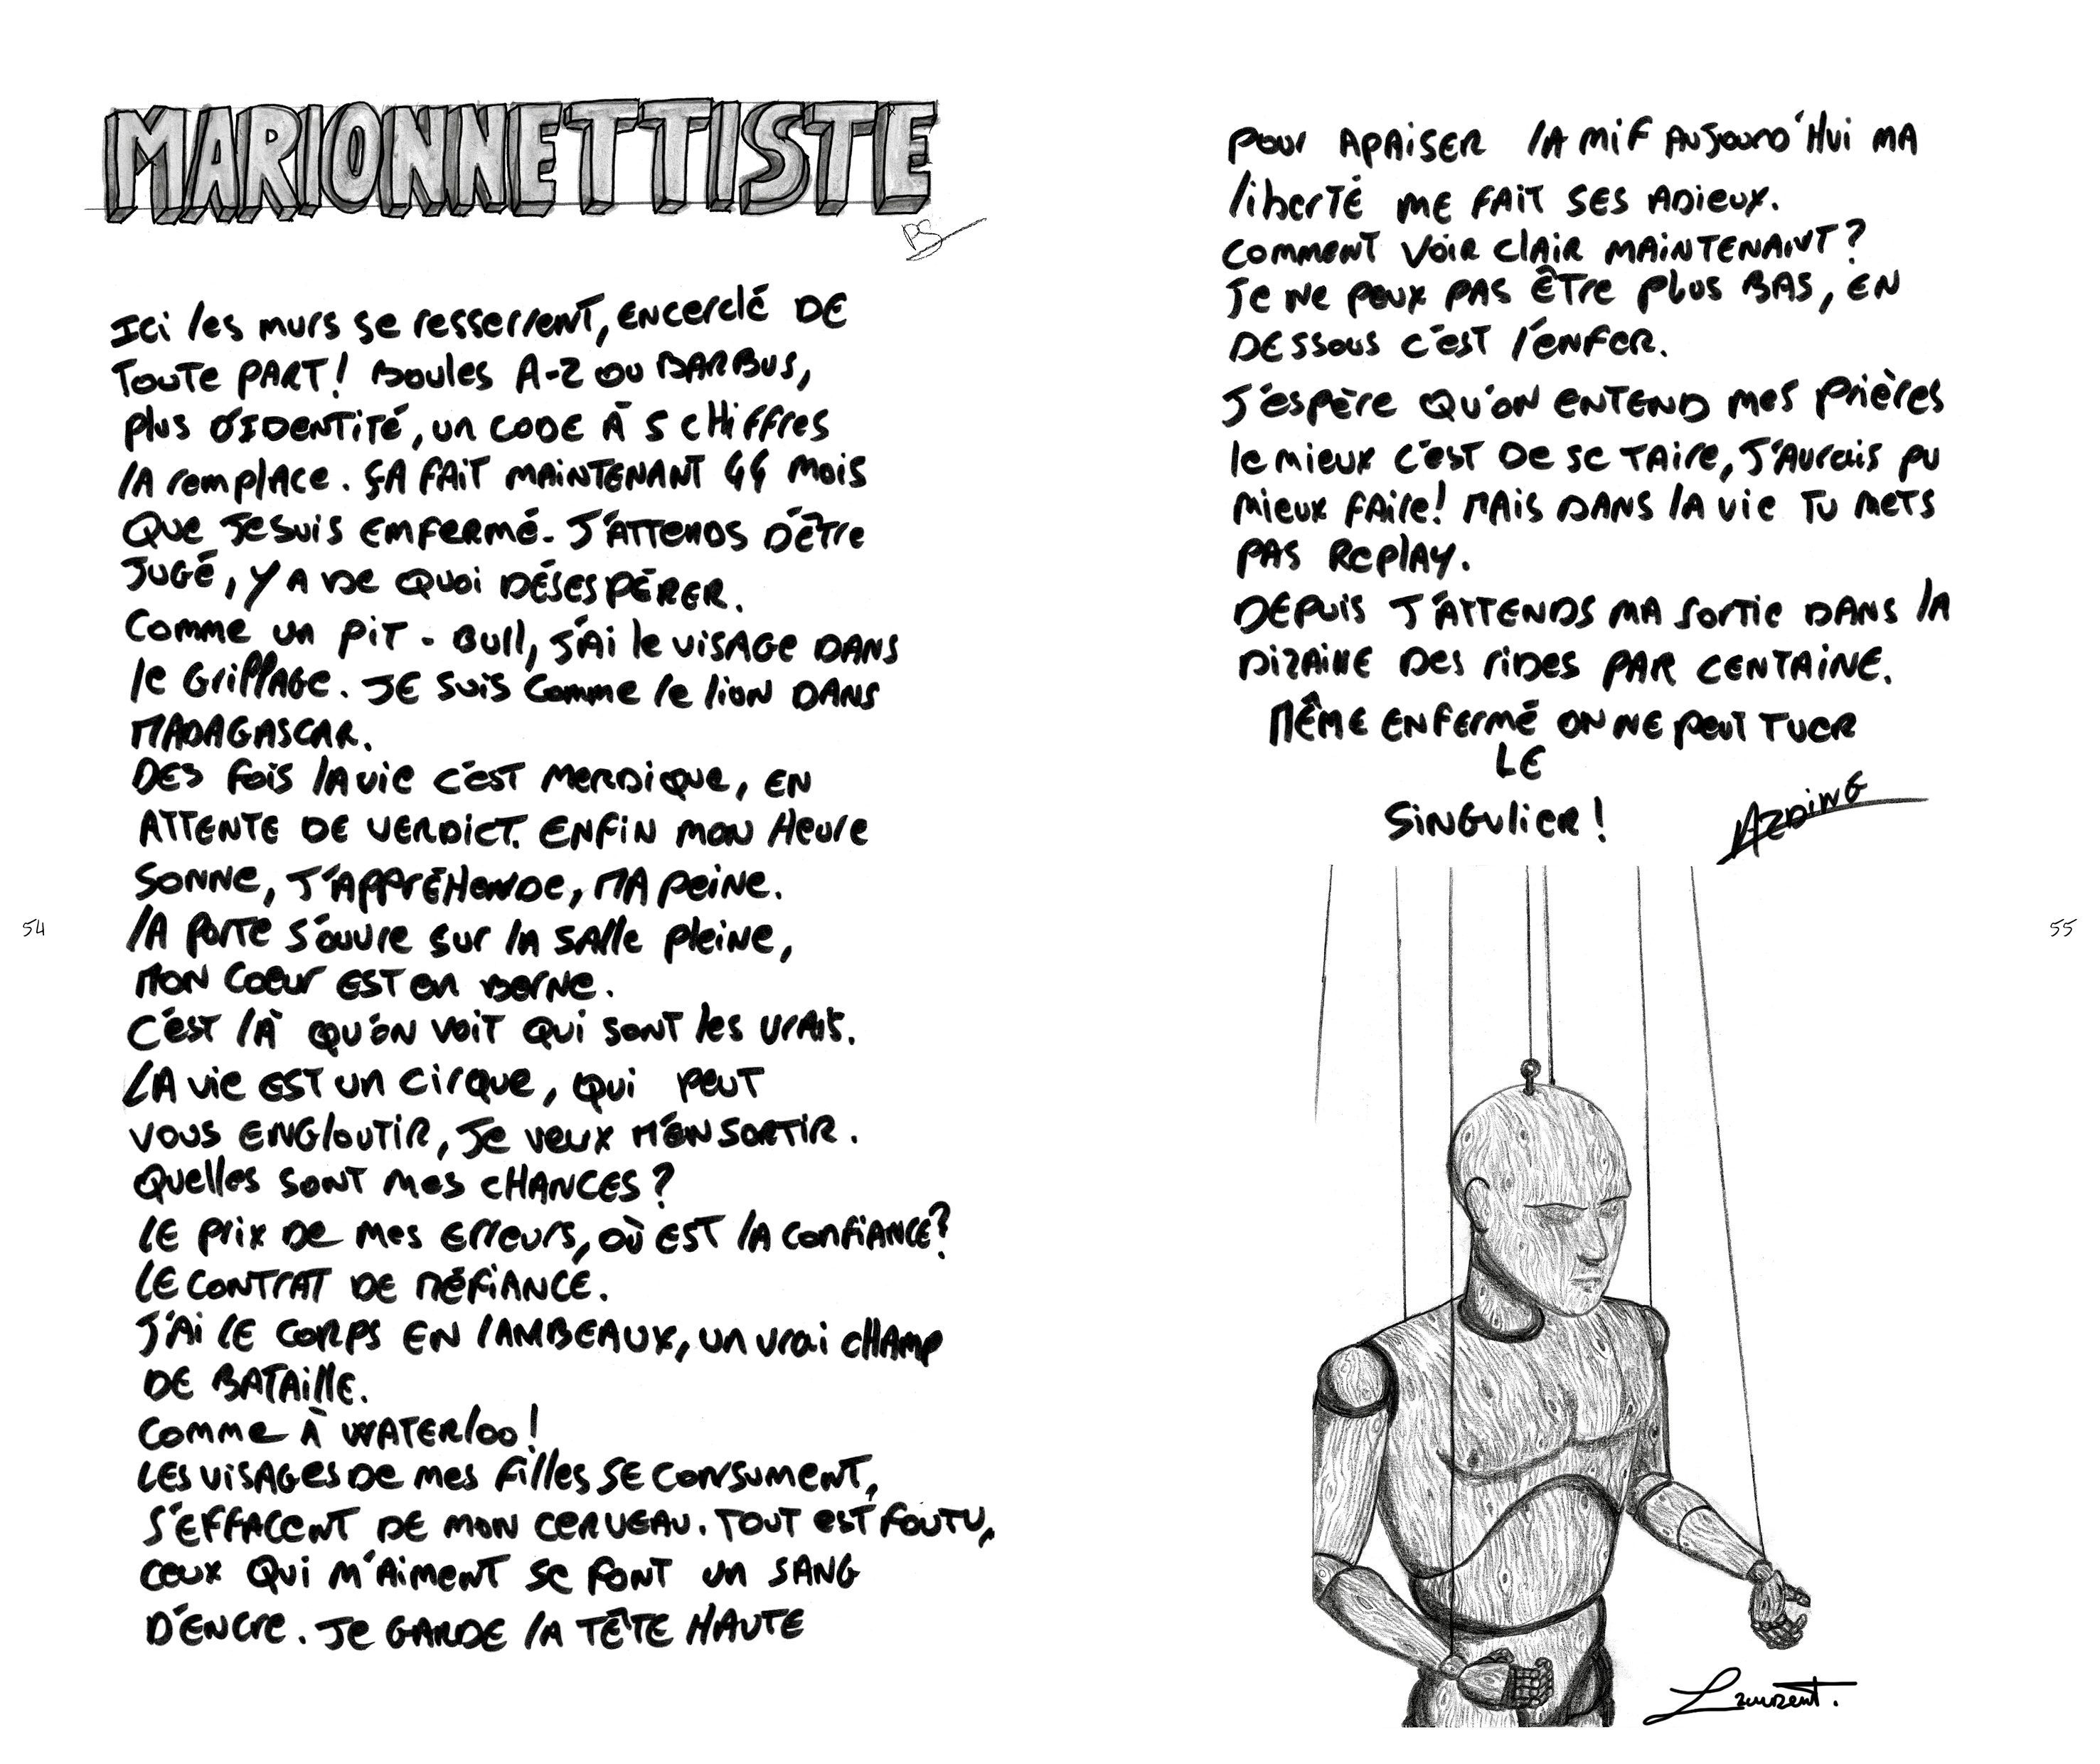 MARIONNETTISTE
BS
Ici les murs se resserrent, encerclé de
toute part! Boules A-Z ou barbus,
plus d'identité, un code à 5 chiffres
la remplace. ça fait maintenant 44 mois
que je suis enfermé. J'attends d'être
jugé, y a de quoi désespérer.
Comme un pit-bull, j'ai le visage dans
le grillage. Je suis comme le lion dans
Madagascar.
Des fois la vie c'est merdique, en
attente de verdict. Enfin mon heure
sonne, j'appréhende, ma peine.
la porte s'ouvre sur la salle pleine,
mon coeur est en berne.
C'est là qu'on voit qui sont les vrais.
La vie est un cirque, qui peut
vous engloutir, je veux m'en sortir.
Quelles sont mes chances?
Le prix de mes erreurs, où est la confiance?
Le contrat de méfiance.
J'ai le corps en lambeaux, un vrai champ
de bataille.
Comme à Waterloo!
Les visages de mes filles se consument,
s'effacent de mon cerveau. Tout est foutu,
ceux qui m'aiment se font un sang
d'encre. Je garde la tête haute
54
pour apaiser la mif aujourd'hui ma
liberté me fait ses adieux.
Comment voir clair maintenant?
Je ne peux pas être plus bas, en
dessous c'est l'enfer.
J'espère qu'on entend mes prières
le mieux c'est de se taire, j'aurais pu
mieux faire! Mais dans la vie tu mets
pas replay.
Depuis j'attends ma sortie dans la
dizaine des rides par centaine.
Même enfermé on ne peut tuer
le
singulier!
Azding
55
Laurent.